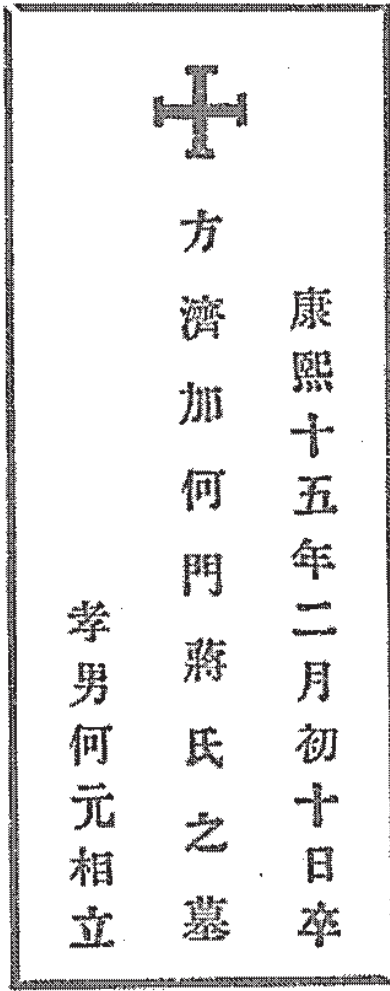 康熙十五年二月初十日卒
方濟加何門蔣氏之墓
孝男何元相立